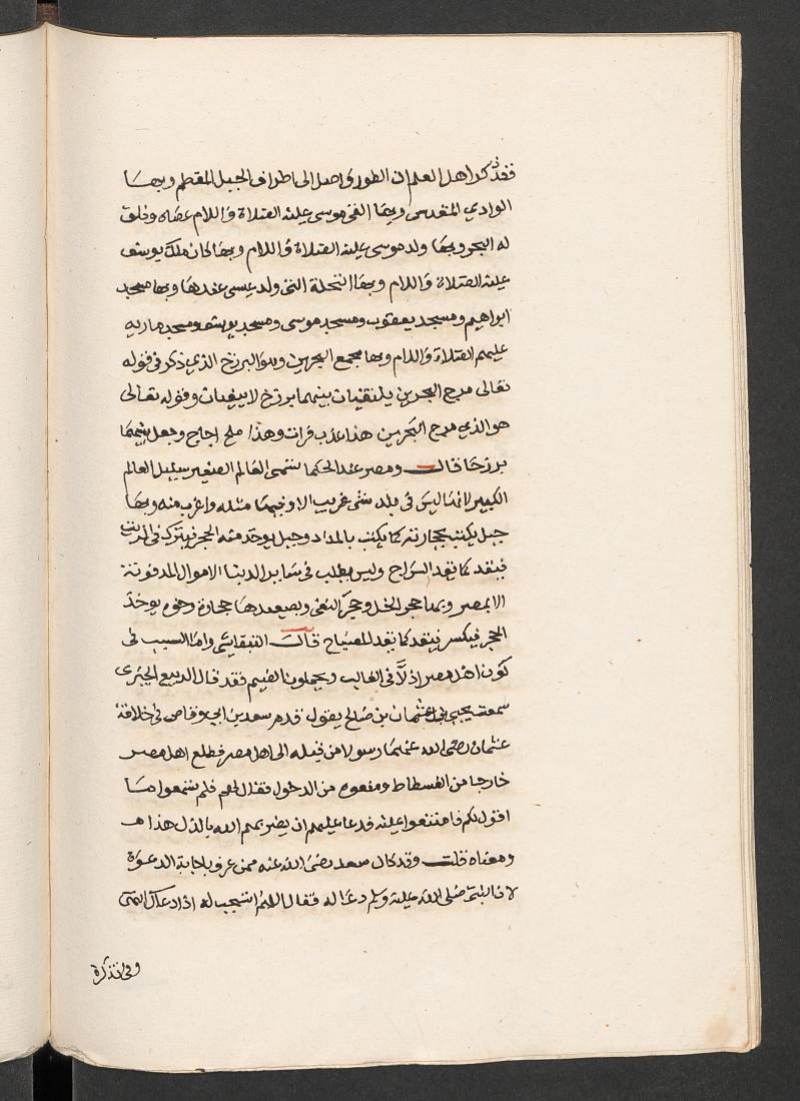 فقد ذكر اهل العلم ان الطور واصل الى اطراف الجبل المقطم وبها
الوادي المقدس وبها القى موسى عليه الصلاة والسلام عصاه وفلق
له البحر وبها ولد موسى عليه الصلاة والسلام وبها كان ملك يوسف
عليه الصلاة والسلام وبها النخلة التي ولد عيسى عندها وبها مسجد
ابراهيم ومسجد يعقوب ومسجد موسى ومسجد يوسف ومسجد ماريه
عليهم الصلاة والسلام وبها مجمع البحرين وهو البرزخ الذي ذكر في قوله
تعالى مرج البحرين يلتقيان بينهما برزخ لا يبغيان وقوله تعالى
هو الذي مرج البحرين هذا عذب فرات وهذا ملح اجاج وجعل بينهما
برزخا قال ومصر عند الحكما تسمى العالم الصغير سليل العالم
الكبير لانه ليس في بلد شي غريب الا وفيها مثله واغرب منه وبها
جبل يكتب بحجارته كما يكتب بالمداد وجبل يوخذ منه الحجر فيترك في الزيت
فيقد كما يقد السراج وليس يطلب في ساير الدنيا الاموال المدفونة
الا بمصر وبها حجر الخل وحجر القي وبصعيدها حجارة رخوه يوخذ
الحجر فيكسر فيقد كما يقد المصباح قالت القبقابي واما السبب في
كون اهل مصر اذلا في الغالب ويحملون الضيم فقد قال الربيع الجيزى
سمعت يحيى بن عثمان بن صالح يقول قدم سعد بن ابي وقاص في خلافة
عثمان رضي الله عنهما رسولا من قبله الى اهل مصر فطلع اهل مصر
خارجا من الفسطاط ومنعوه من الدخول فقال لهم فلم يسمعوا ما
اقول لكم فامتنعوا عليه فدعا عليهم ان يضربهم الله بالذل هذا هـ
ومعناه قلت وقد كان سعد رضي الله عنه ممن عرف باجابة الدعوة
لان النبي صلى الله عليه وسلم دعا له فقال اللهم استجب له اذا دعاك انتهى
وفي تذكرة